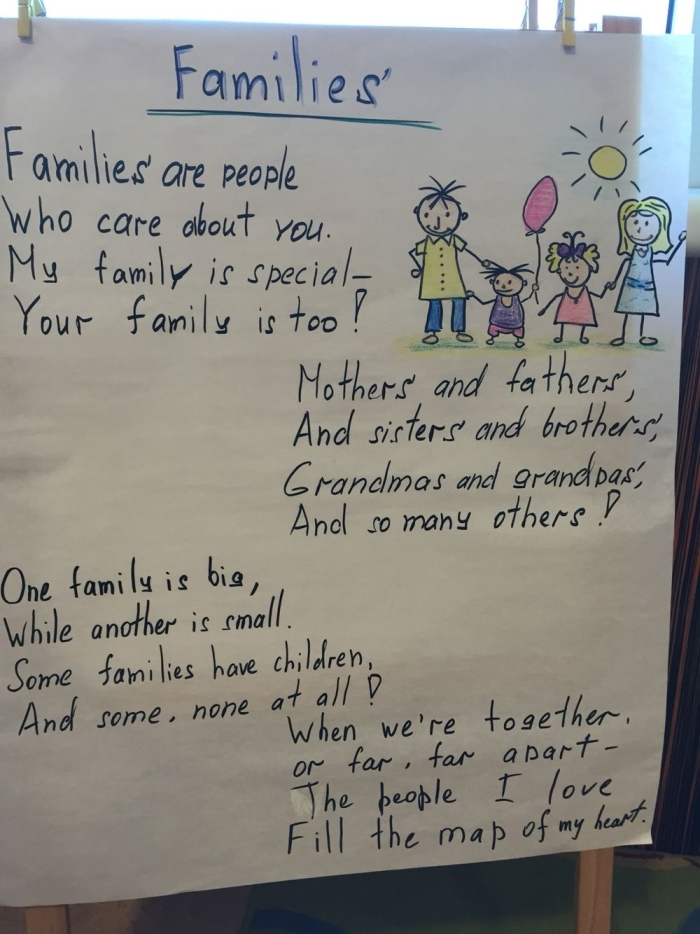 Families
Families are people
Who care about you.
My family is special—
Your family is too!
Mothers and fathers,
And sisters and brothers,
Grandmas and grandpas,
And so many others!
One family is big,
While another is small.
Some families have children,
And some, none at all!
When we're together,
or far, far apart—
The people I love
Fill the map of my heart.